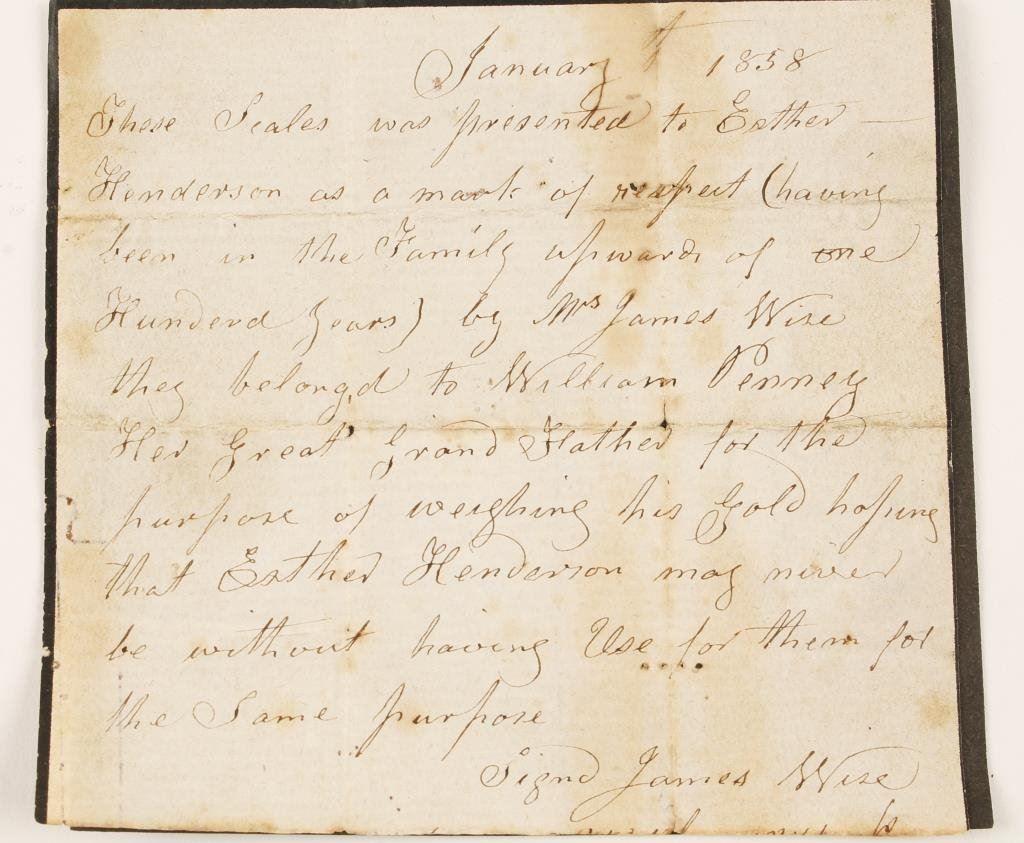 January 1858
These Scales was presented to Esther
Henderson as a mark of respect (having
been in the Family upwards of one
Hunderd years) by Mrs James Wise
they belongd to William Penney
Her Great Grand Father for the
purpose of weighing his Gold hoping
that Esther Henderson may niver
be without having Use for them for
the Same purpose
Signd James Wise